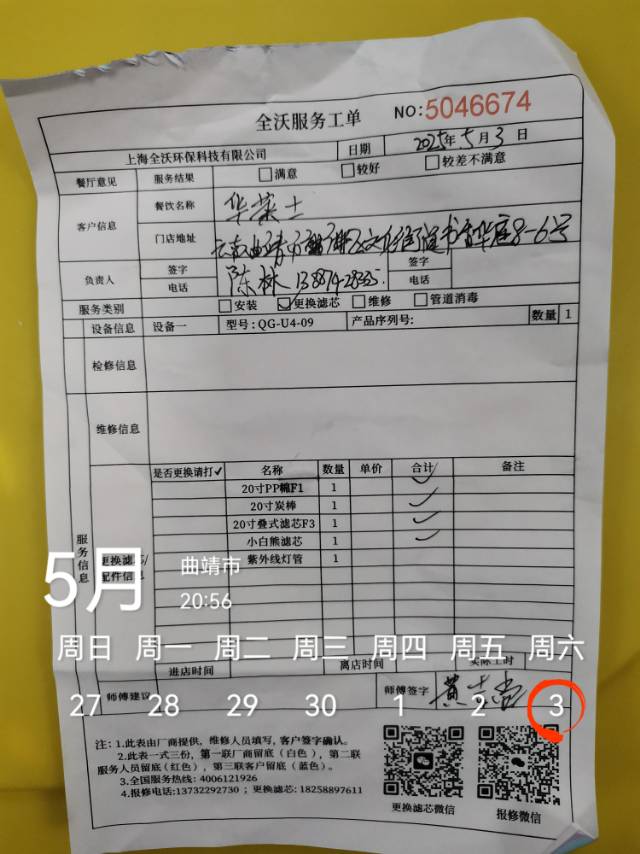 全沃服务工单
NO:5046674
上海全沃环保科技有限公司
日期 2025年5月3日
餐厅意见 服务结果 满意 较好 较差不满意
客户信息 餐饮名称 华莱士
门店地址 云南曲靖市 8-6号
负责人 签字 陈林 签字
电话 电话
服务类别 安装 更换滤芯 维修 管道消毒
设备信息 设备一 型号:QG-U4-09 产品序列号: 数量 1
检修信息
维修信息
服务信息
是否更换请打✓ 名称 数量 单价 合计 备注
20寸PP棉F1 1 ✓
20寸炭棒 1 ✓
20寸叠式滤芯F3 1 ✓
小白熊滤芯 1 ✓
紫外线灯管 1
更换滤芯/
配件信息
5月
曲靖市
20:56
周日 周一 周二 周三 周四 周五 周六
27 28 29 30 1 2 3
进店时间 离店时间 实际工时
师傅建议 师傅签字
注:1.此表由厂商提供,维修人员填写,客户签字确认。
2.此表一式三份,第一联厂商留底(白色),第二联
服务人员留底(红色),第三联客户留底(蓝色)。
3.全国服务热线:4006121926
4.报修电话:13732292730;更换滤芯:18258897611
更换滤芯微信
报修微信